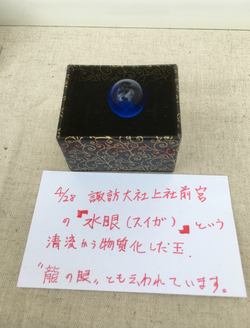 4/28 諏訪大社上社前宮
の『水眼(スイガ)』という
清流から物質化した玉.
"龍の眼"とも云われています。